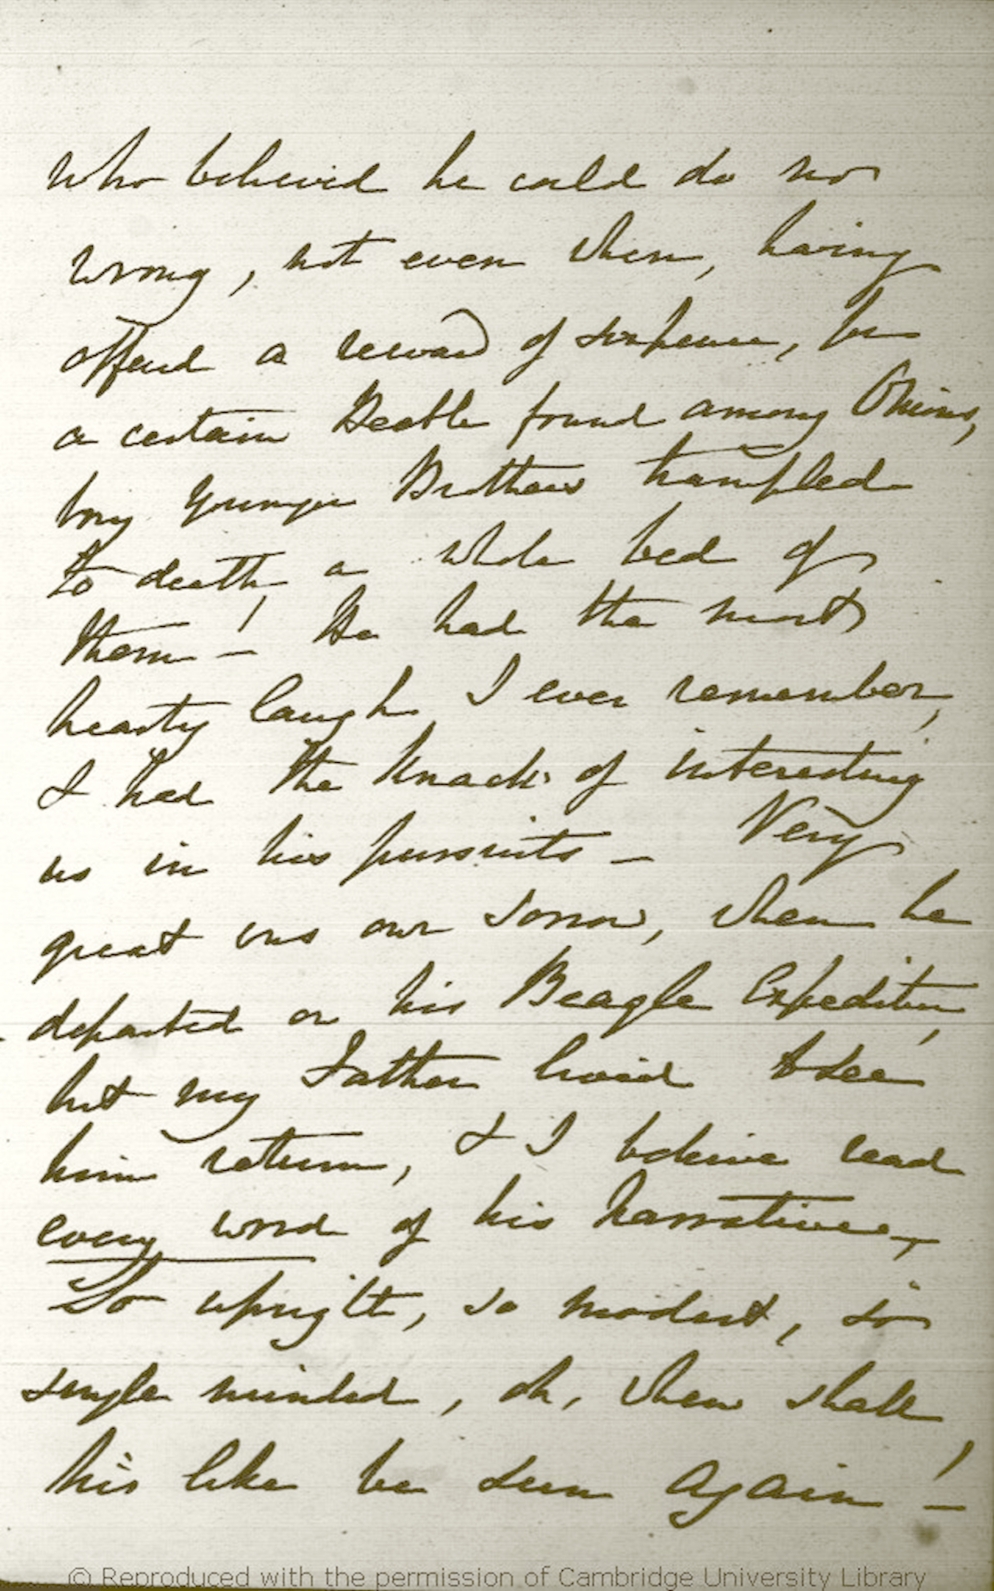 who believed he could do no
wrong, not even when, having
offered a reward of sixpence, for
a certain Beetle found among Onions,
my younger Brothers trampled
to death, a whole bed of
them! — He had the most
hearty laugh, I ever remember,
& had the knack of interesting
us in his pursuits — Very
great was our sorrow, when he
departed on his Beagle Expedition,
but my Father lived to see
him return, & I believe read
every word of his Narrative,
So upright, so modest, so
single minded, oh, when shall
his like be seen again! —
© Reproduced with the permission of Cambridge University Library